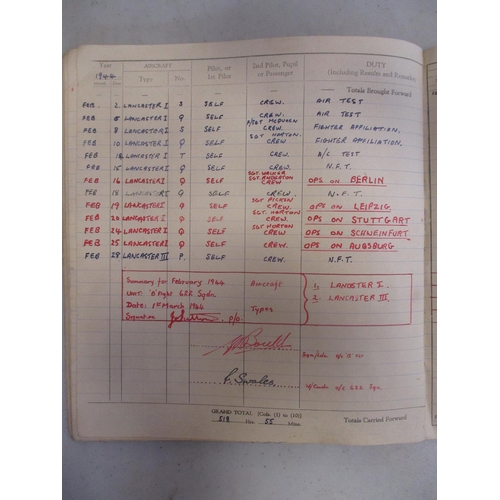 Year AIRCRAFT Pilot, or 2nd Pilot, Pupil DUTY
1944 Type No. 1st Pilot or Passenger (Including Results and Remarks)
Totals Brought Forward
FEB 2 LANCASTER I S SELF CREW. AIR TEST
FEB 5 LANCASTER I Q SELF CREW. AIR TEST
FEB 8 LANCASTER I S SELF CREW. FIGHTER AFFILIATION.
SGT HORTON.
FEB 10 LANCASTER I Q SELF CREW FIGHTER AFFILIATION.
FEB LANCASTER I T SELF CREW. A/C TEST
FEB 15 LANCASTER I Q SELF CREW. N.F.T.
SGT. WALKER
SGT. ANDERTON
FEB 16 LANCASTER I Q SELF CREW OPS ON BERLIN
FEB 18 LANCASTER I Q SELF CREW N.F.T.
SGT PICKEN
FEB 19 LANCASTER I Q SELF CREW. OPS ON LEIPZIG
SGT. HORTON
FEB 20 LANCASTER I Q SELF CREW. OPS ON STUTTGART
SGT HORTON
FEB 24 LANCASTER I Q SELF CREW OPS ON SCHWEINFURT
FEB 25 LANCASTER I Q SELF CREW. OPS ON AUGSBURG
FEB 28 LANCASTER III P. SELF CREW. N.F.T.
Summary for February 1944 Aircraft 1, LANCASTER I.
Unit: 'B' Flight 622 Sqdn. 2. LANCASTER III.
Date: 1st March 1944 Types
Signature P/O.
o/c 622 Sqn.
GRAND TOTAL [Cols. (1) to (10)]
518 Hrs. 55 Mins.
Totals Carried Forward